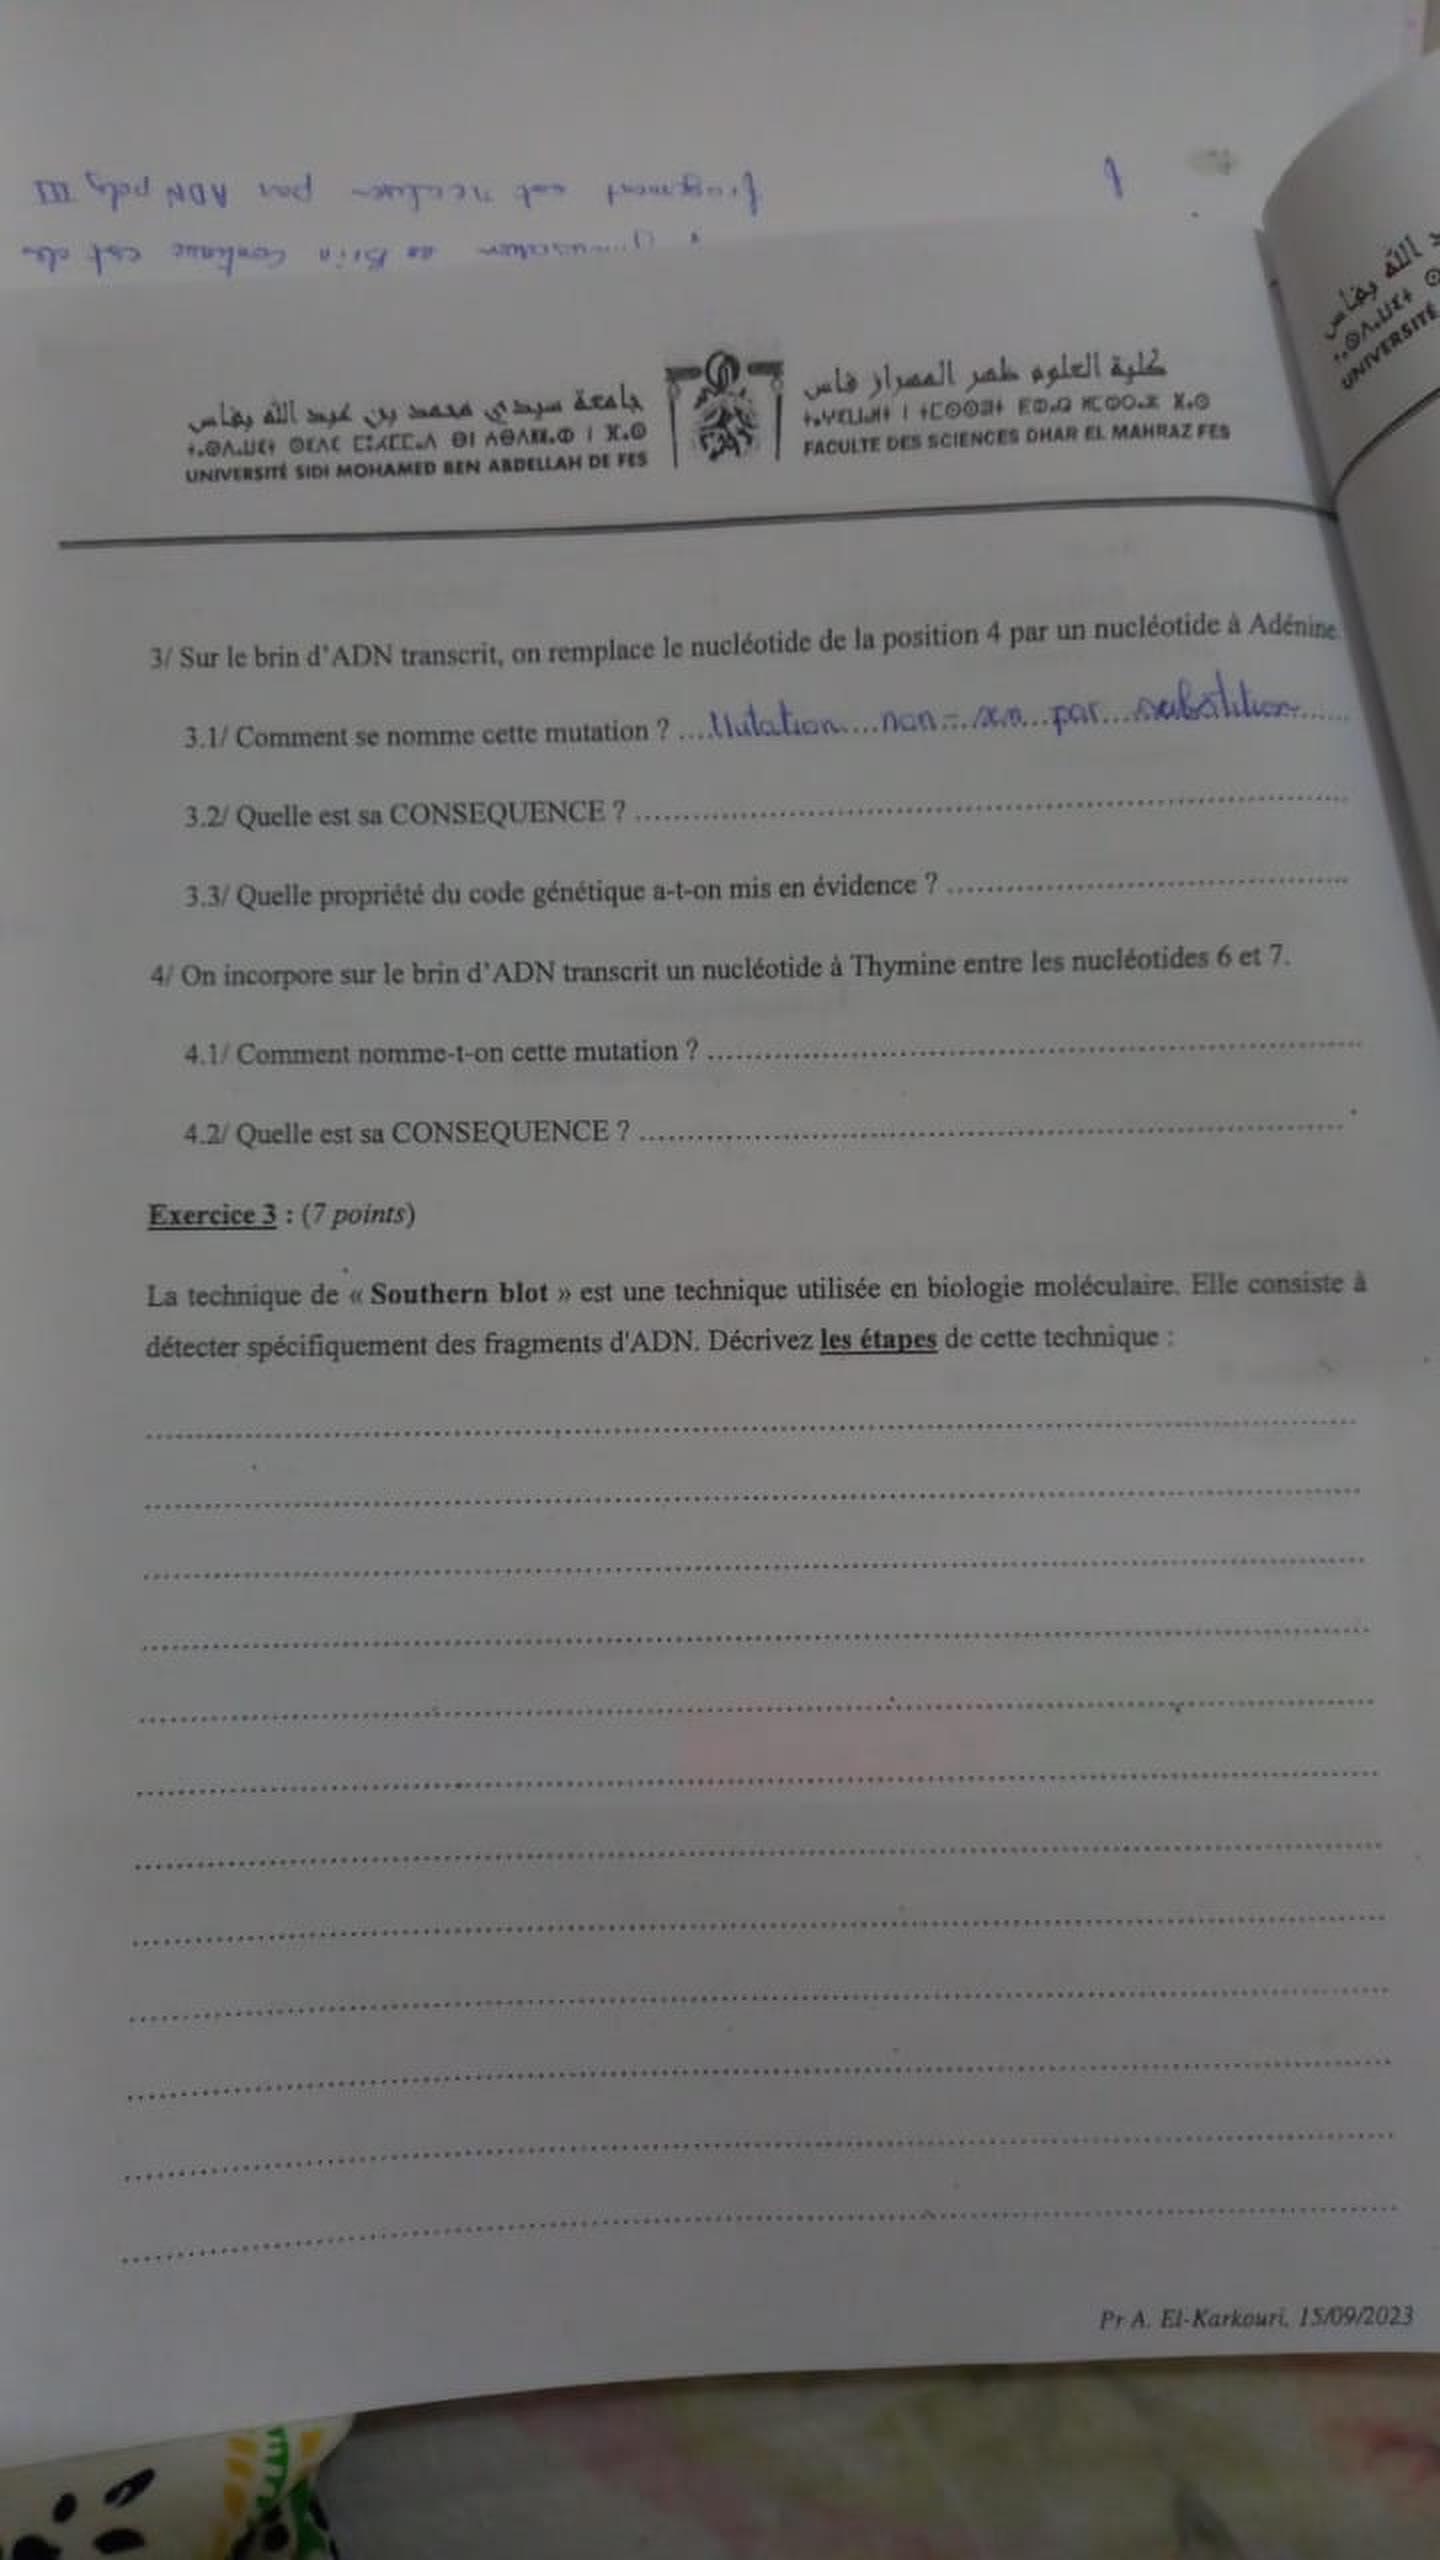 fragment est realiser par ADN poly III
جامعة سيدي محمد بن عبد الله بفاس
ⵜⴰⵙⴷⴰⵡⵉⵜ ⵙⵉⴷⵉ ⵎⵓⵃⵎⵎⴰⴷ ⴱⵏ ⵄⴱⴷⵍⵍⴰⵀ ⵏ ⴼⴰⵙ
UNIVERSITÉ SIDI MOHAMED BEN ABDELLAH DE FES
كلية العلوم ظهر المهراز فاس
FACULTE DES SCIENCES DHAR EL MAHRAZ FES
الله بفاس
UNIVERSITÉ
3/ Sur le brin d'ADN transcrit, on remplace le nucléotide de la position 4 par un nucléotide à Adénine
3.1/ Comment se nomme cette mutation ? ....Mutation....non-sens...par...substitution......
3.2/ Quelle est sa CONSEQUENCE ?
3.3/ Quelle propriété du code génétique a-t-on mis en évidence ?
4/ On incorpore sur le brin d'ADN transcrit un nucléotide à Thymine entre les nucléotides 6 et 7.
4.1/ Comment nomme-t-on cette mutation ?
4.2/ Quelle est sa CONSEQUENCE ?
Exercice 3 : (7 points)
La technique de « Southern blot » est une technique utilisée en biologie moléculaire. Elle consiste à
détecter spécifiquement des fragments d'ADN. Décrivez les étapes de cette technique :
Pr A. El-Karkouri, 15/09/2023